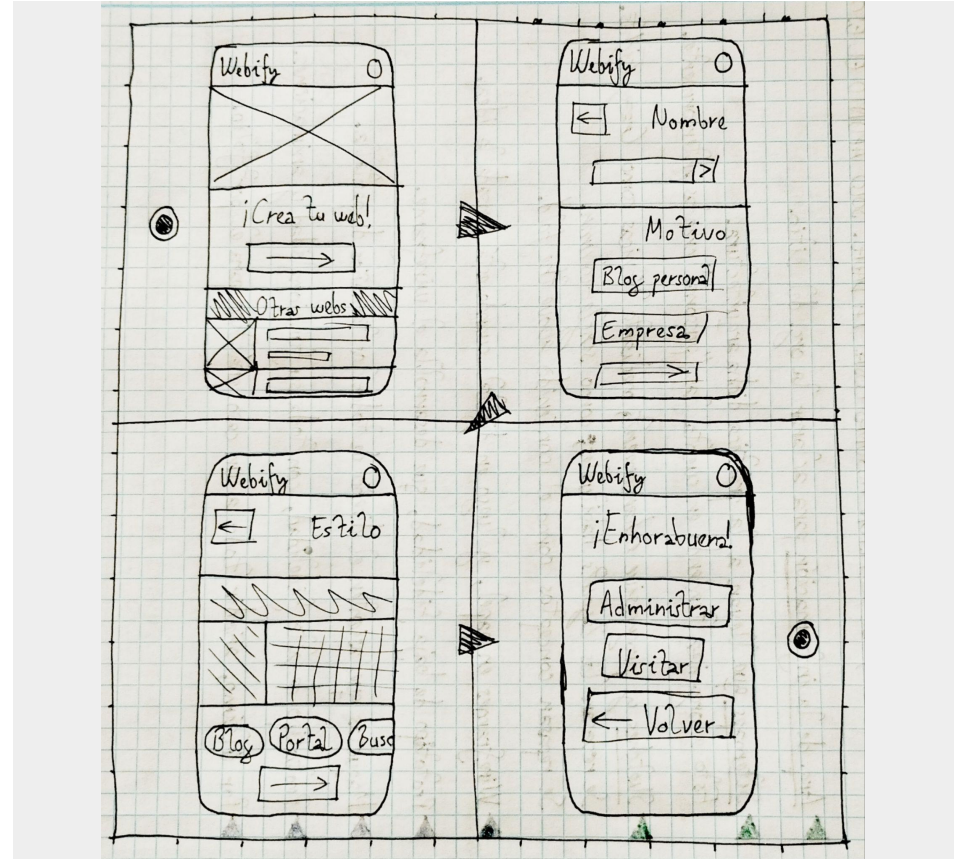 Webify
¡Crea tu web!
Otras webs
Webify
Nombre
Motivo
Blog personal
Empresa
Webify
Estilo
Blog
Portal
Busc
Webify
¡Enhorabuena!
Administrar
Visitar
Volver